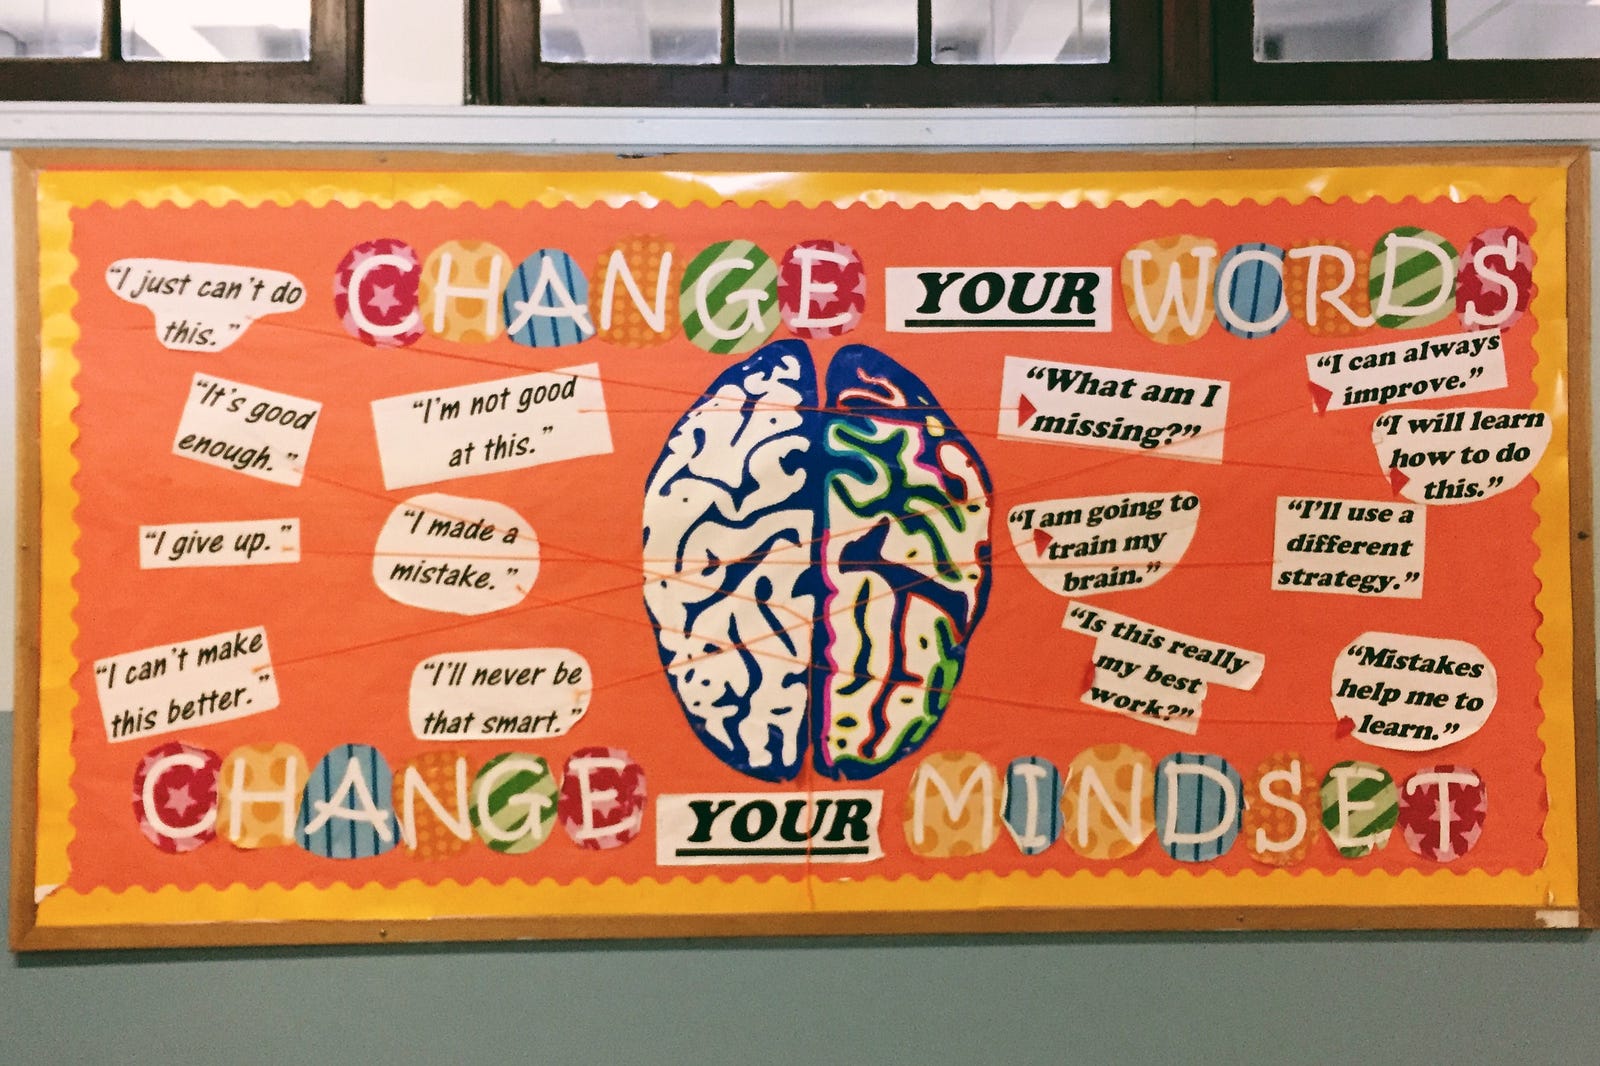 CHANGE YOUR WORDS
"I just can't do
this."
"It's good
enough."
"I'm not good
at this."
"I give up."
"I made a
mistake."
"I can't make
this better."
"I'll never be
that smart."
"What am I
missing?"
"I can always
improve."
"I will learn
how to do
this."
"I am going to
train my
brain."
"I'll use a
different
strategy."
"Is this really
my best
work?"
"Mistakes
help me to
learn."
CHANGE YOUR MINDSET